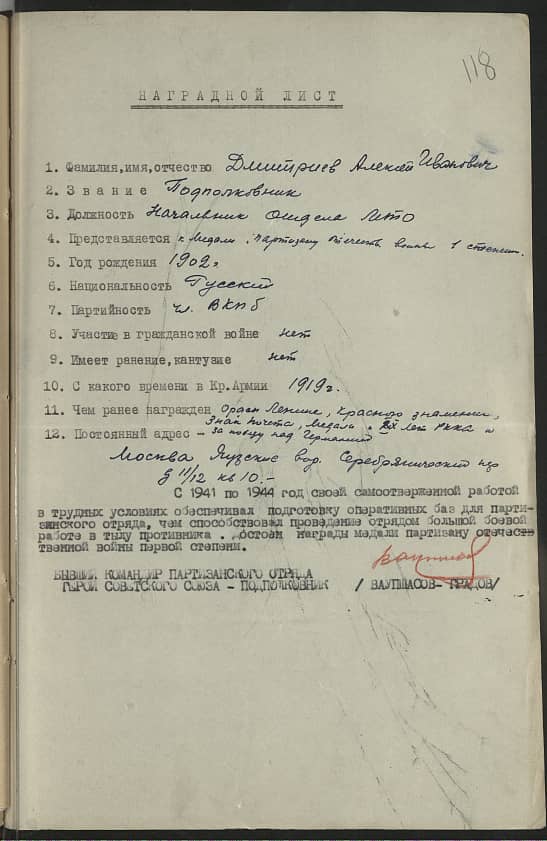 118
НАГРАДНОЙ ЛИСТ
1. Фамилия,имя,отчество Дмитриев Алексей Иванович
2. Звание Подполковник
3. Должность Начальник Отдела
4. Представляется к Медали "Партизану Отечеств войны 1 степени.
5. Год рождения 1902 г
6. Национальность Русский
7. Партийность чл. ВКПб
8. Участие в гражданской войне нет
9. Имеет ранение,кантузие нет
10. С какого времени в Кр.Армии 1919г.
11. Чем ранее награжден Орден Ленина, Красного знамени,
Знак почета, Медали " XX лет РККА и
12. Постоянный адрес – за победу над Германией
Москва Яузские вор. Серебрянический пер
д 11/12 кв 10.-
С 1941 по 1944 год своей самоотверженной работой
в трудных условиях обеспечивал подготовку оперативных баз для парти-
занского отряда, чем способствовал проведение отрядом большой боевой
работе в тылу противника . достоен награды медали партизану отечест
твенной войны первой степени.
БЫВШИЙ КОМАНДИР ПАРТИЗАНСКОГО ОТРЯДА
ГЕРОЙ СОВЕТСКОГО СОЮЗА – ПОДПОЛКОВНИК / ВАУПШАСОВ- ГРАДОВ/